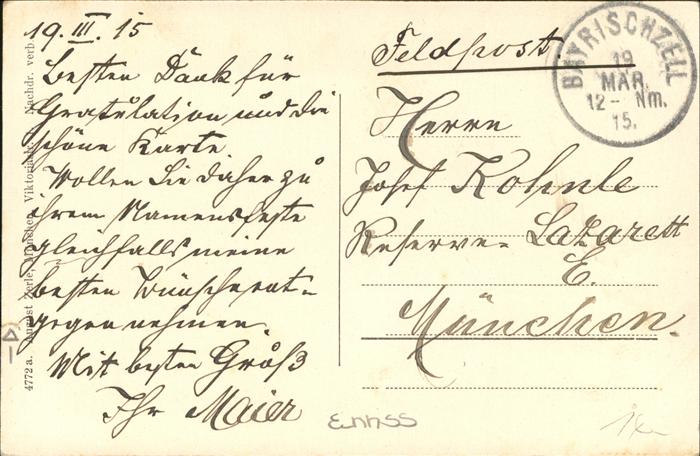 19. III. 15
Besten Dank für
Gratulation und die
schöne Karte.
Wollen Sie daher zu
ihrem Namensfeste
gleichfalls meine
besten Wünsche ent-
gegennehmen.
Mit besten Gruß
Ihr Maier
4772 a. August Zerle, München, Viktoriastr. Nachdr. verb
Feldpost
BAYRISCHZELL
19
MAR.
12 - Nm.
15.
Herrn
Josef Kohnle
Reserve-Lazarett
E.
München.